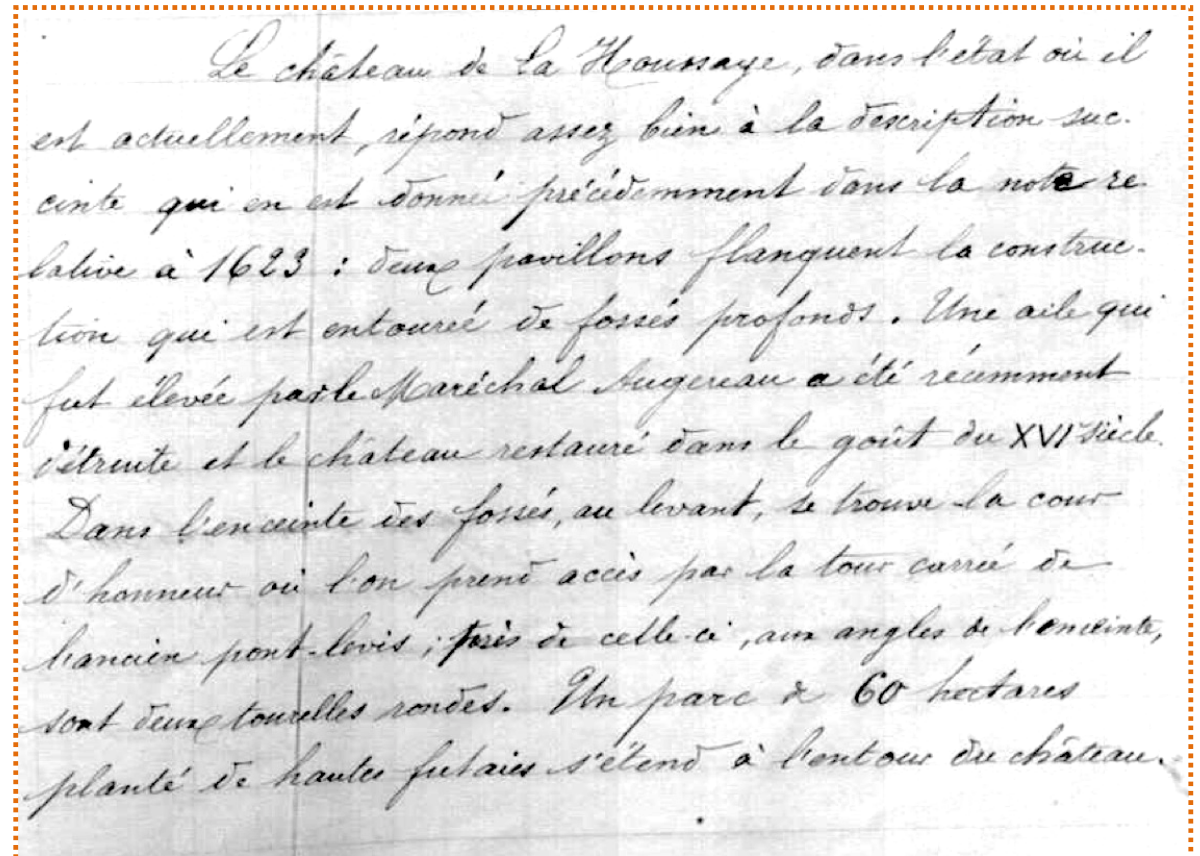 Le château de La Houssaye, dans l'état où il
est actuellement, répond assez bien à la description suc-
cinte qui en est donnée précédemment dans la note re
lative à 1623 : deux pavillons flanquent la construc-
tion qui est entourée de fossés profonds. Une aile qui
fut élevée par le Maréchal Augereau a été récemment
détruite et le château restauré dans le goût du XVI siècle.
Dans l'enceinte des fossés, au levant, se trouve la cour
d'honneur où l'on prend accès par la tour carrée de
l'ancien pont-levis ; près de celle-ci, aux angles de l'enceinte,
sont deux tourelles rondes. Un parc de 60 hectares
planté de hautes futaies s'étend à l'entour du château.